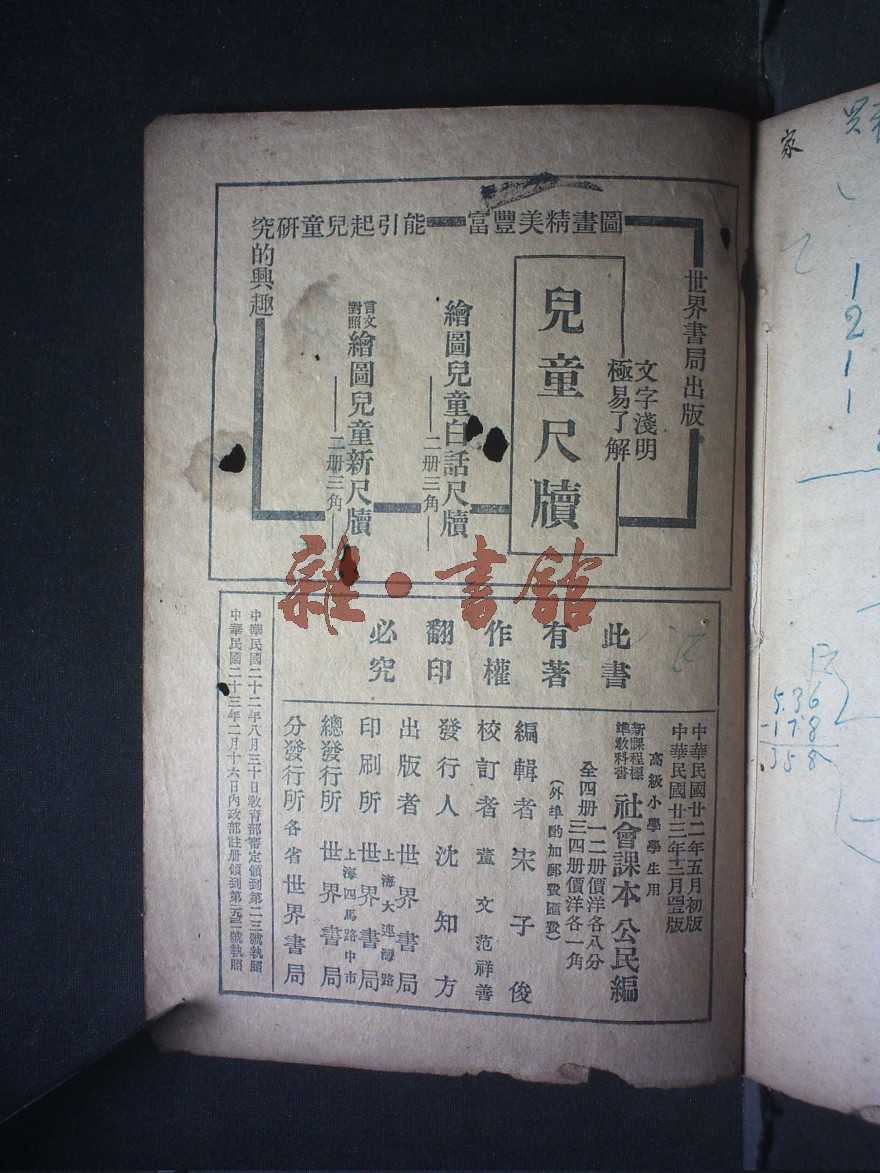 世界書局出版
圖畫精美豐富——能引起兒童研究的興趣
文字淺明
極易了解
兒童尺牘
繪圖兒童白話尺牘
——二册三角——
言文對照繪圖兒童新尺牘
——二册三角——
雜·書館
此書有著作權翻印必究
中華民國廿二年五月初版
中華民國廿三年十二月
高級小學學生用
新課程標準教科書 社會課本 公民編
全四册 一二册價洋各八分
三四册價洋各一角
(外埠酌加郵費匯費)
編輯者 宋子俊
校訂者 董文 范祥善
發行人 沈知方
出版者 世界書局
印刷所 上海大連灣路 世界書局
總發行所 上海四馬路中市 世界書局
分發行所 各省世界書局
中華民國二十二年八月三十日教育部審定領到第二三號執照
中華民國二十三年二月十六日內政部註册領到第
號執照
家
1
2
1
1
5.36
-178
358